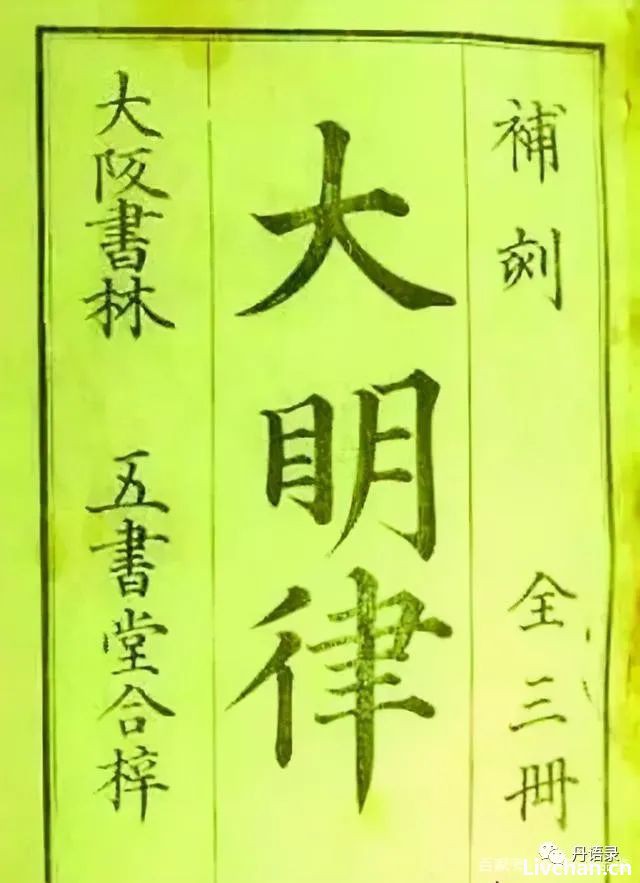 補刻 全三冊
大明律
大阪書林 五書堂合梓
丹语录
Livchan.cn